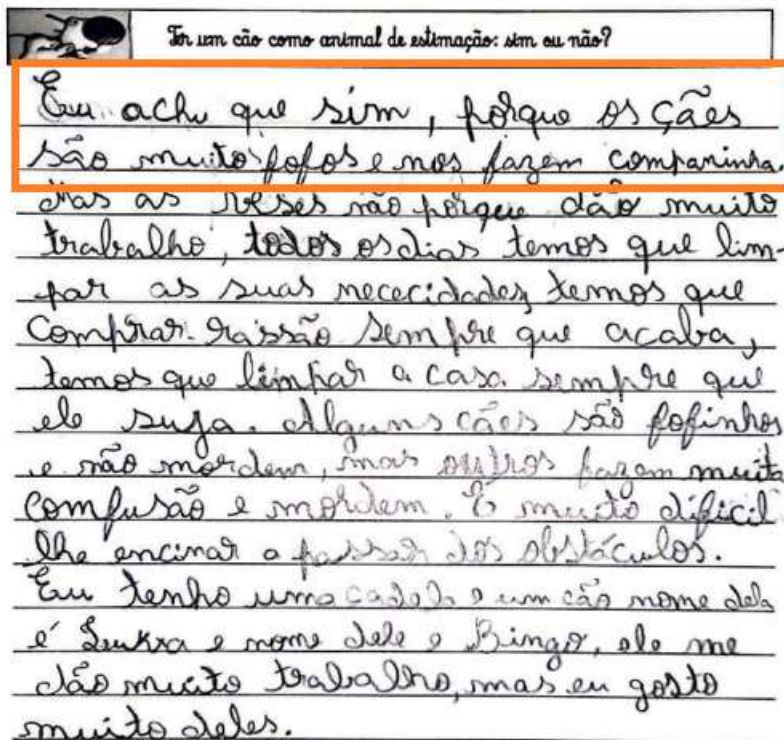 Ter um cão como animal de estimação: sim ou não?
Eu achu que sim, porque os çães
são muito fofos e nos fazem companinha.
Mas as veses não porque dão muito
trabalho, todos os dias temos que lim-
par as suas nececidades, temos que
comprar rassão sempre que acaba,
temos que limpar a casa sempre que
ele suja. Alguns cães são fofinhos
e não mordem, mas outros fazem muita
comfusão e mordem. É muito dificil
lhe encinar a passar dos obstáculos.
Eu tenho uma cadela e um cão nome dela
é e nome dele e Bingo, ele me
dão muito trabalho, mas eu gosto
muito deles.